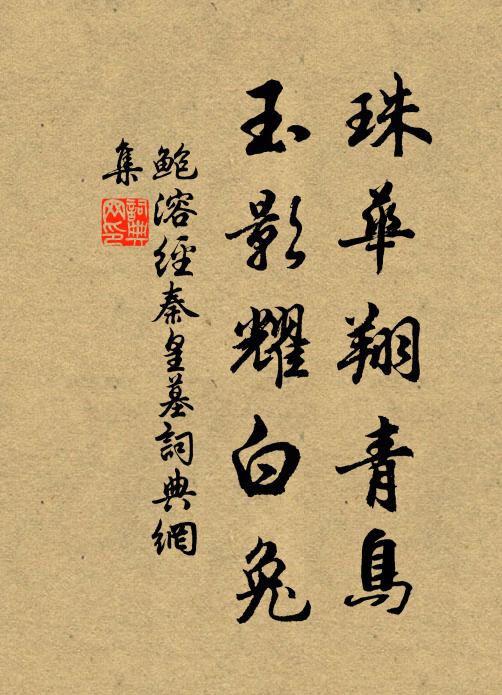 珠華翔青鳥
玉影耀白兔
鲍溶經秦皇墓詞典網
集
詞典
网印